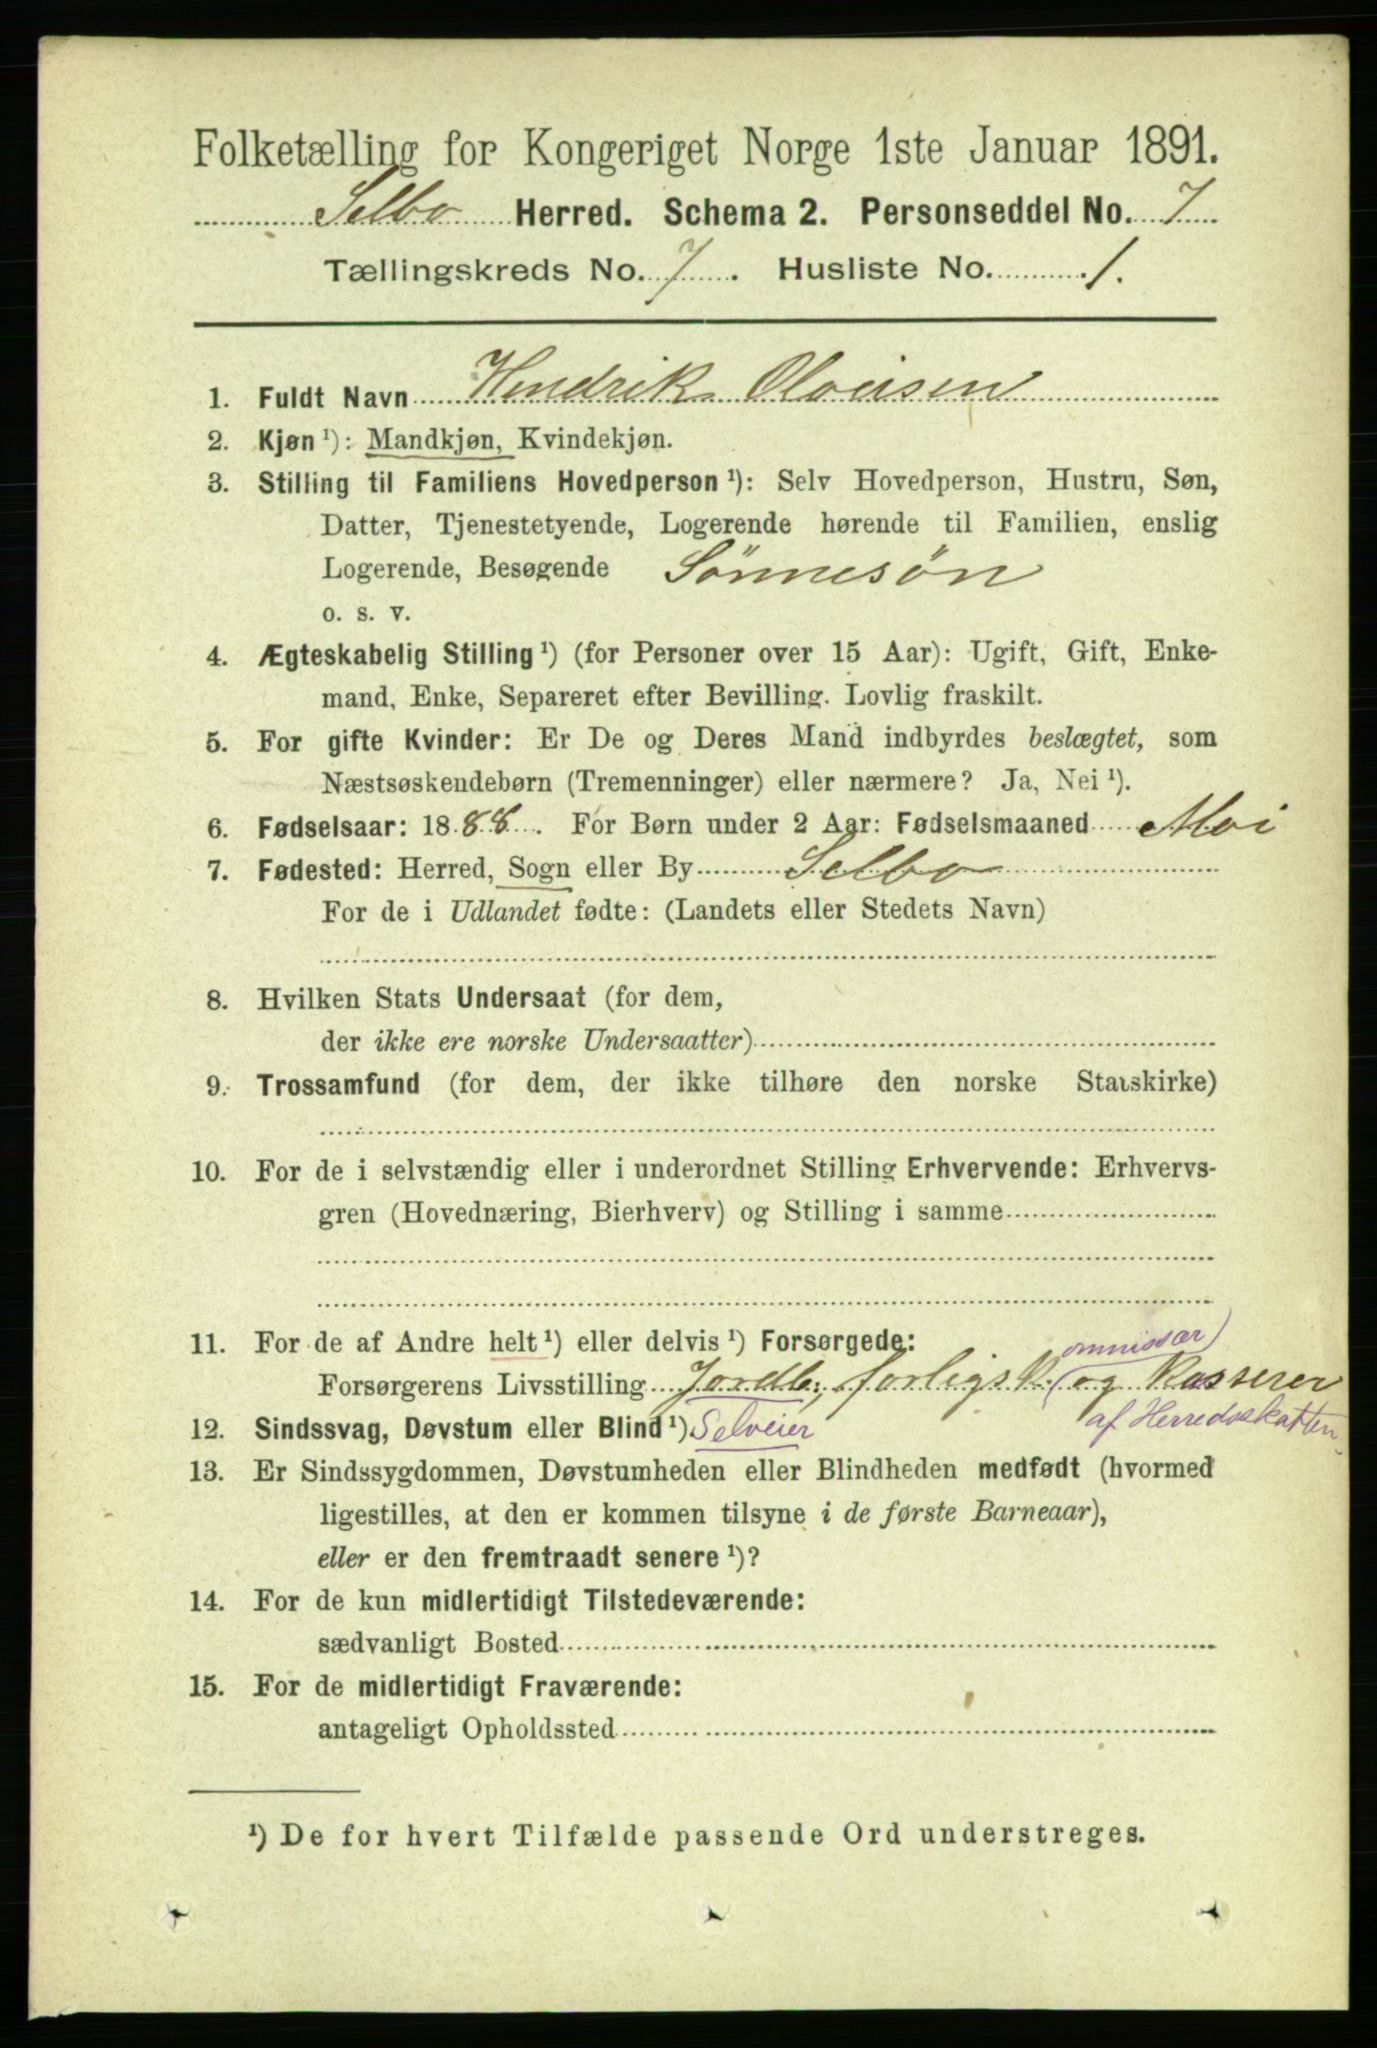 Folketælling for Kongeriget Norge 1ste Januar 1891.
Selbo Herred. Schema 2. Personseddel No. 7
Tællingskreds No. 7. Husliste No. 1.
1. Fuldt Navn Hendrik Olaisen
2. Kjøn ¹): Mandkjøn, Kvindekjøn.
3. Stilling til Familiens Hovedperson ¹): Selv Hovedperson, Hustru, Søn,
Datter, Tjenestetyende, Logerende hørende til Familien, enslig
Logerende, Besøgende Sönnesön
o. s. v.
4. Ægteskabelig Stilling ¹) (for Personer over 15 Aar): Ugift, Gift, Enke-
mand, Enke, Separeret efter Bevilling. Lovlig fraskilt.
5. For gifte Kvinder: Er De og Deres Mand indbyrdes beslægtet, som
Næstsøskendebørn (Tremenninger) eller nærmere? Ja, Nei ¹).
6. Fødselsaar: 1888. For Børn under 2 Aar: Fødselsmaaned Mai
7. Fødested: Herred, Sogn eller By Selbo
For de i Udlandet fødte: (Landets eller Stedets Navn)
8. Hvilken Stats Undersaat (for dem,
der ikke ere norske Undersaatter)
9. Trossamfund (for dem, der ikke tilhøre den norske Statskirke)
10. For de i selvstændig eller i underordnet Stilling Erhvervende: Erhvervs-
gren (Hovednæring, Bierhverv) og Stilling i samme
11. For de af Andre helt ¹) eller delvis ¹) Forsørgede:
ommissær)
Forsørgerens Livsstilling Jordb., forligsk. (og Kasserer
af Herredsskatten.
12. Sindssvag, Døvstum eller Blind ¹) Selveier
13. Er Sindssygdommen, Døvstumheden eller Blindheden medfødt (hvormed
ligestilles, at den er kommen tilsyne i de første Barneaar),
eller er den fremtraadt senere ¹)?
14. For de kun midlertidigt Tilstedeværende:
sædvanligt Bosted
15. For de midlertidigt Fraværende:
antageligt Opholdssted
¹) De for hvert Tilfælde passende Ord understreges.